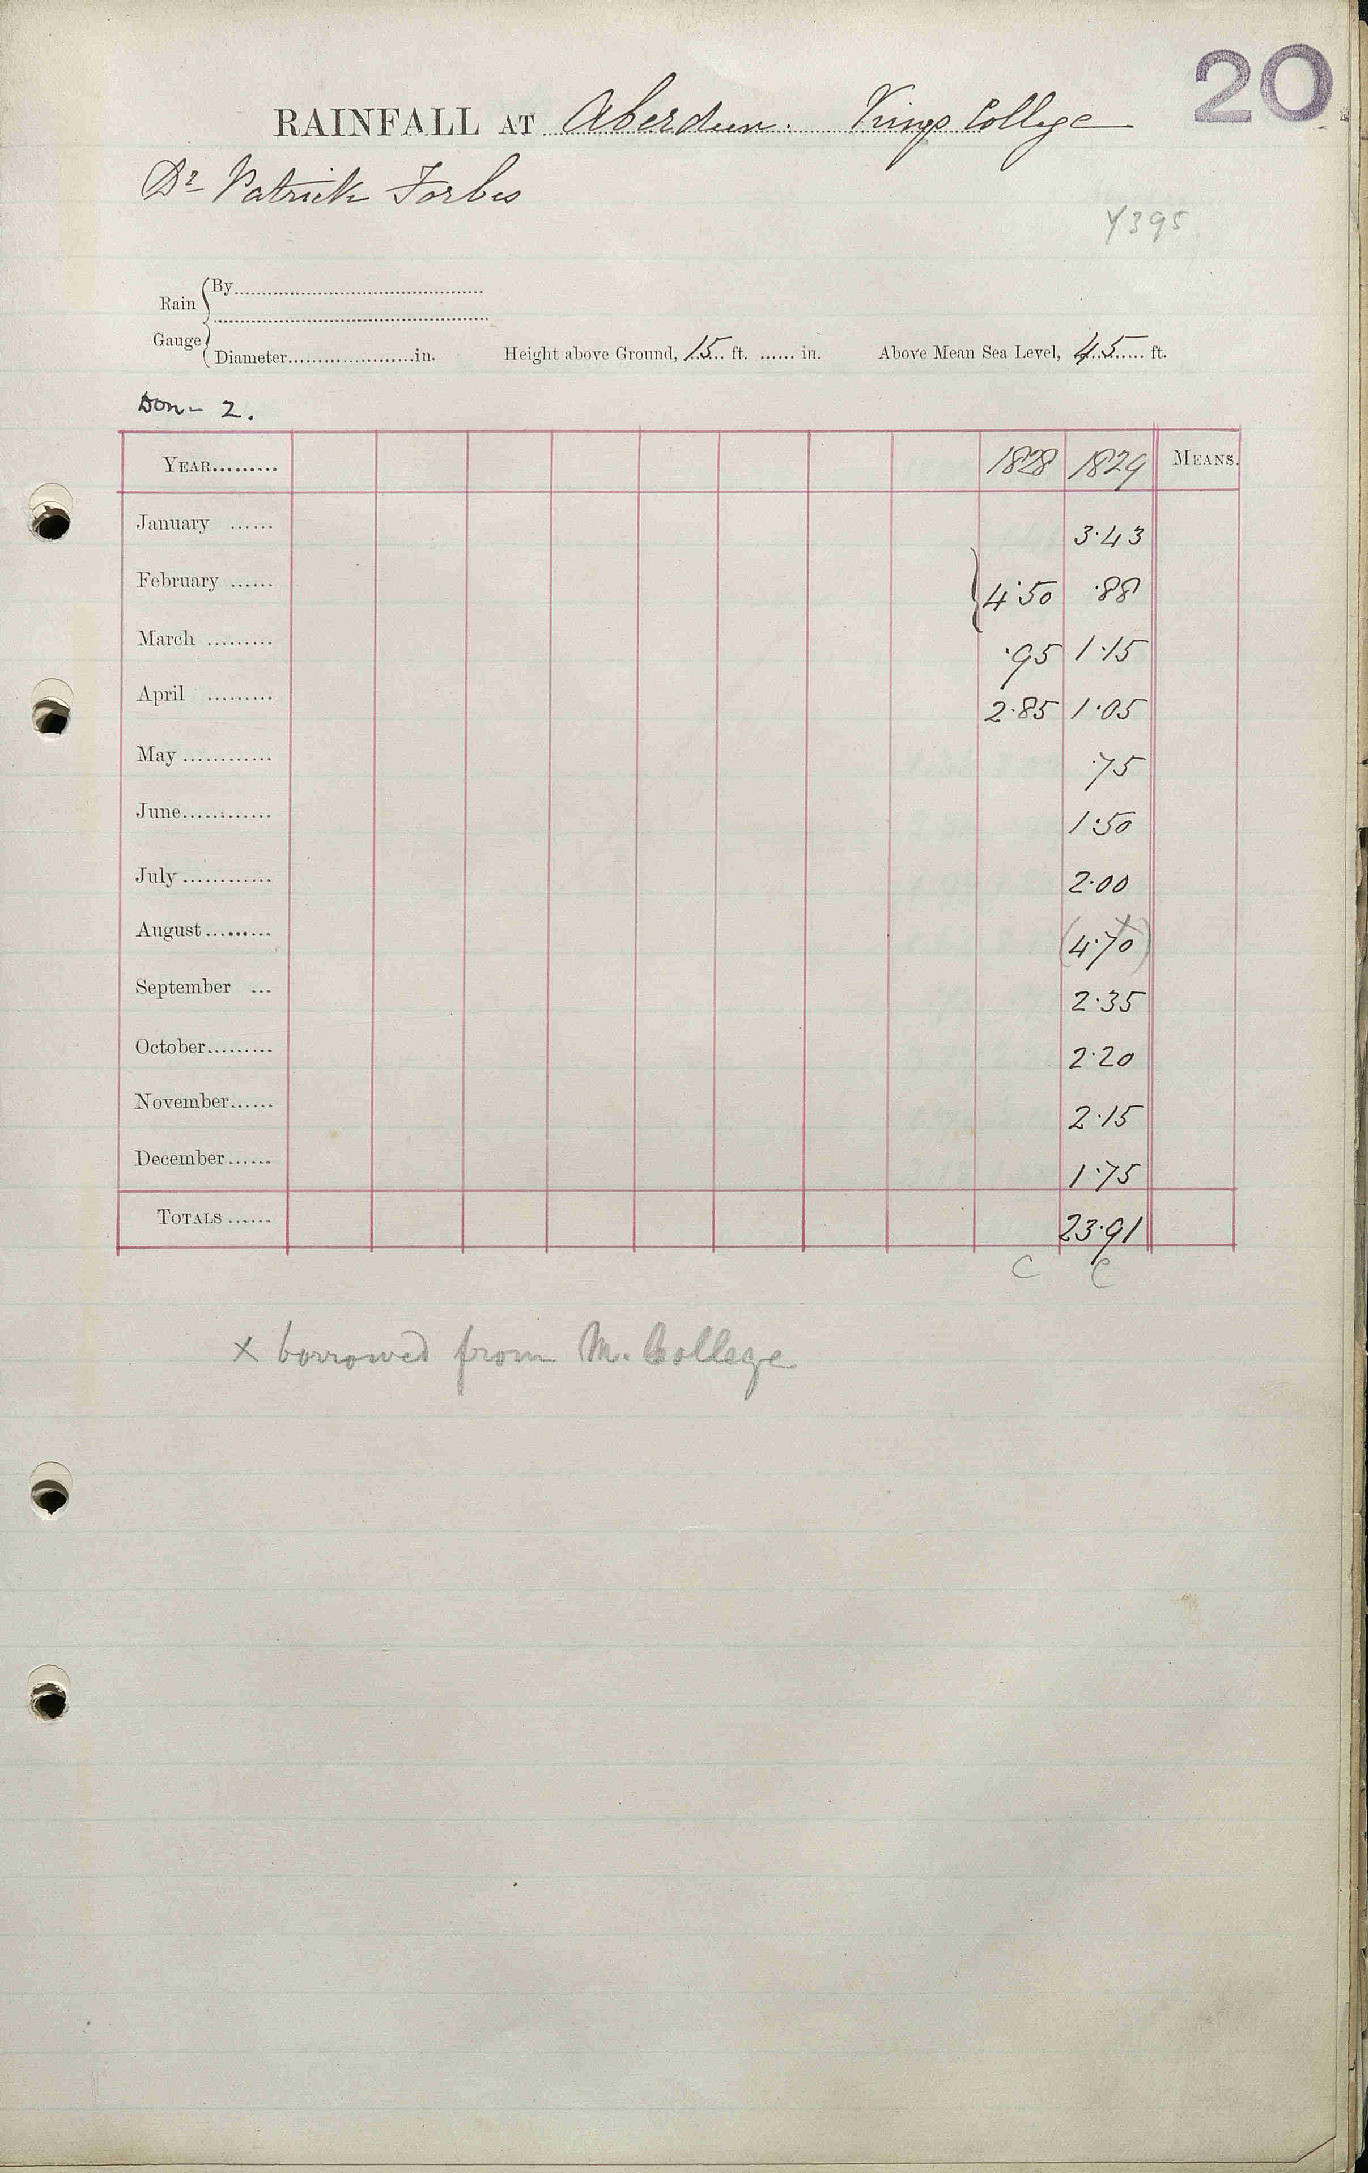 20
RAINFALL AT Aberdeen. Kings College
Dr Patrick Forbes
Y395
Rain Gauge { By
Diameter in. Height above Ground, 15 ft. in. Above Mean Sea Level, 45 ft.
Don - 2.
YEAR 1828 1829 MEANS.
January 3.43
February } 4.50 .88
March .95 1.15
April 2.85 1.05
May .75
June 1.50
July 2.00
August (4.70) x
September 2.35
October 2.20
November 2.15
December 1.75
TOTALS 23.91
C C
x borrowed from M. College